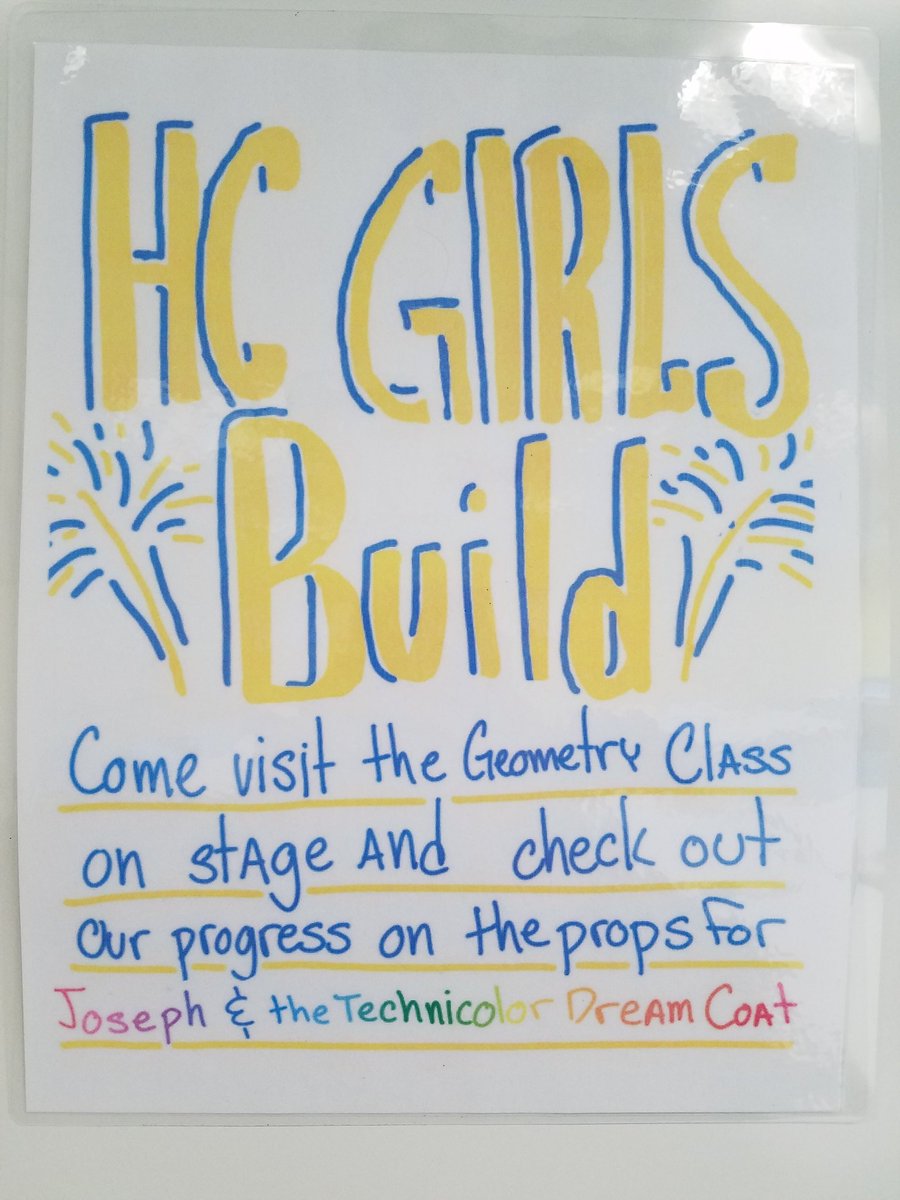 HC GIRLS
Build
Come visit the Geometry Class
on stage and check out
our progress on the props for
Joseph & the Technicolor Dream Coat